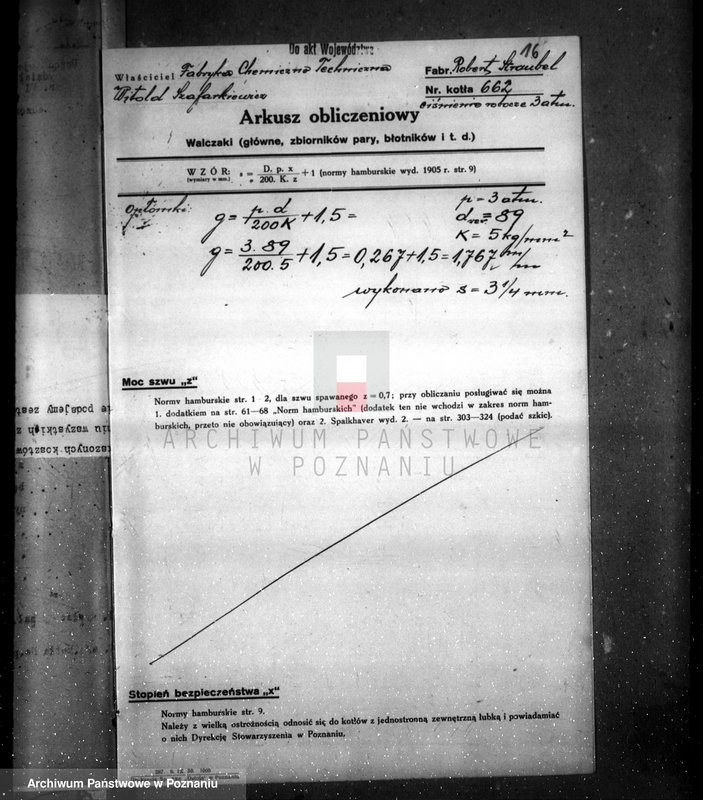 Do akt Województwa
16
Właściciel Fabryka Chemiczno Techniczna
Witold Szafarkiewicz
Fabr. Robert Straubel
Nr. kotła 662
ciśnienie robocze 3 atm.
Arkusz obliczeniowy
Walczaki (główne, zbiorników pary, błotników i t. d.)
WZÓR: s = D. p. x / 200. K. z + 1 (normy hamburskie wyd. 1905 r. str. 9)
(wymiary w mm.)
g = p. d / 200 K + 1,5 =
p = 3 atm.
d = 89
K = 5 kg/mm²
g = 3. 89 / 200. 5 + 1,5 = 0,267 + 1,5 = 1,767 m/m
wykonano s = 3 1/4 mm.
Moc szwu „z"
Normy hamburskie str. 1 2, dla szwu spawanego z = 0,7; przy obliczaniu posługiwać się można
1. dodatkiem na str. 61—68 „Norm hamburskich" (dodatek ten nie wchodzi w zakres norm ham-
burskich, przeto nie obowiązujący) oraz 2. Spalkhaver wyd. 2. — na str. 303—324 (podać szkic).
ARCHIWUM PAŃSTWOWE
W POZNANIU
Stopień bezpieczeństwa „x"
Normy hamburskie str. 9.
Należy z wielką ostrożnością odnosić się do kotłów z jednostronną zewnętrzną łubką i powiadamiać
o nich Dyrekcję Stowarzyszenia w Poznaniu.
Archiwum Państwowe w Poznaniu